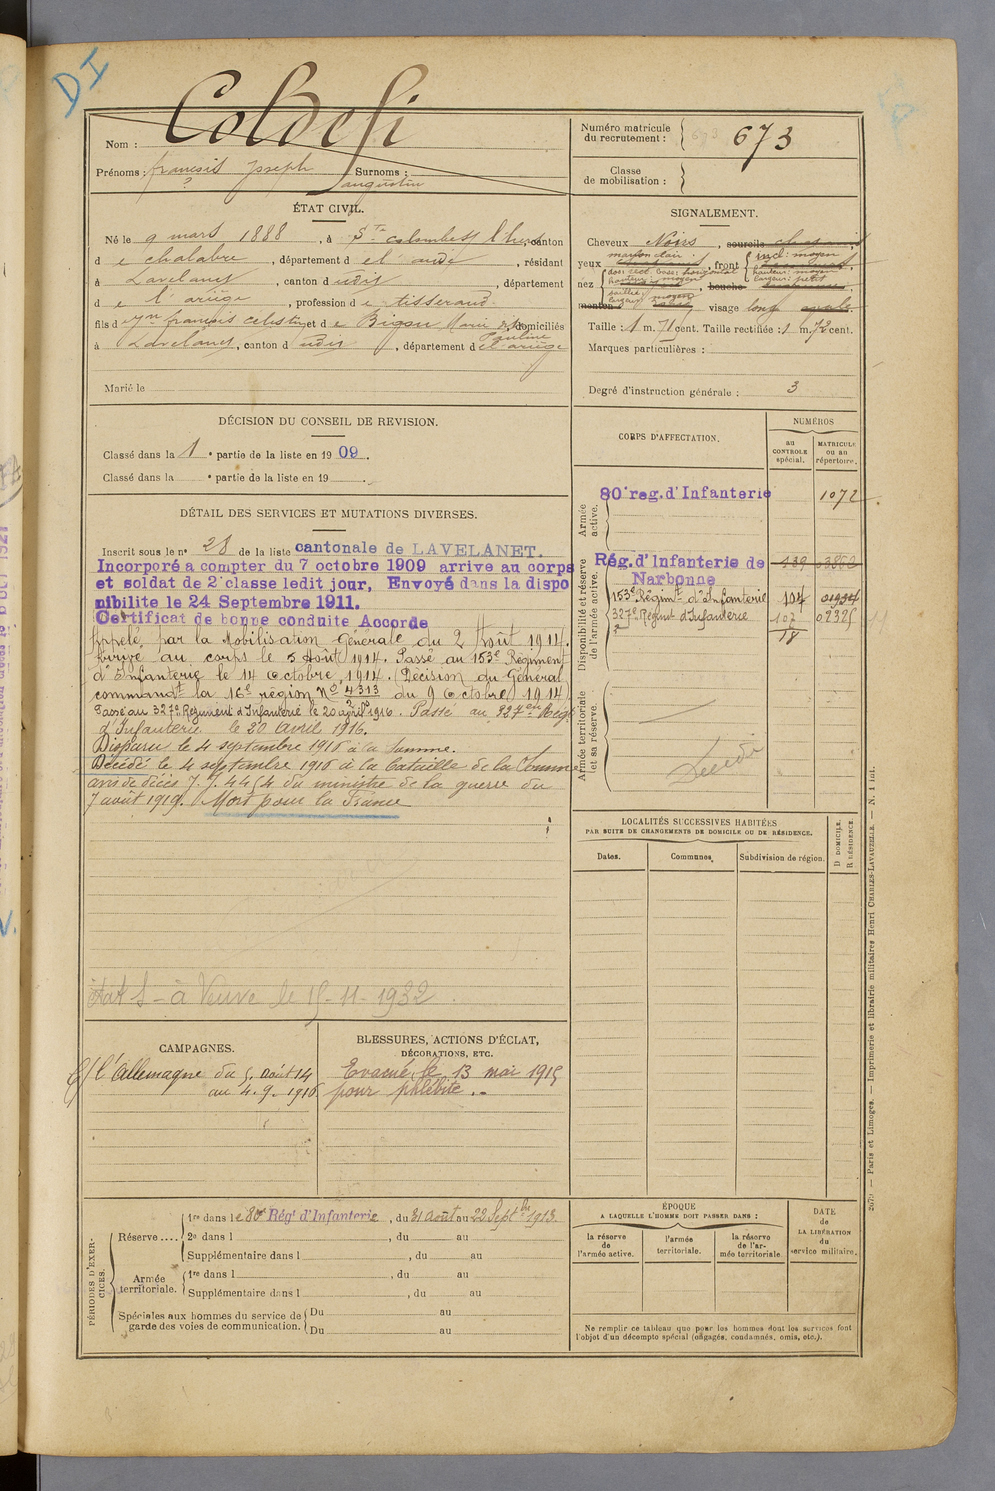 DI
Nom : Coldefi
Prénoms : françois Joseph Surnoms :
augustin
Numéro matricule
du recrutement : 673
Classe
de mobilisation :
ÉTAT CIVIL.
Né le 9 mars 1888, à Ste colombe s/ l'hers, canton
d e chalabre, département d e l'aude, résidant
à Lavelanet, canton d udit, département
d e l'ariège, profession d e tisserand
fils d e françois celestin et d e Bigou Marie domiciliés
Pauline
à Lavelanet, canton d udit, département d e l'ariège
Marié le
SIGNALEMENT.
Cheveux Noirs, sourcils
yeux marron clair, front incl: moyen
hauteur: moyen
largeur: petit
nez dos: rect. base: horizontal
hauteur: moyen
saillie:
largeur: moyen
bouche
menton visage long ovale
Taille : 1 m. 71 cent. Taille rectifiée : 1 m. 72 cent.
Marques particulières :
Degré d'instruction générale : 3
DÉCISION DU CONSEIL DE REVISION.
Classé dans la 1 e partie de la liste en 19 09.
Classé dans la e partie de la liste en 19 .
CORPS D'AFFECTATION.
NUMÉROS
au
CONTROLE
spécial.
MATRICULE
ou au
répertoire.
Armée
active.
80e reg. d'Infanterie 1072
Disponibilité et réserve
de l'armée active.
Rég. d'Infanterie de
Narbonne 139
153e Régiment d'Infanterie 104 01934
327e Régint d'Infanterie 107 02325
18
Armée territoriale
et sa réserve.
DÉTAIL DES SERVICES ET MUTATIONS DIVERSES.
Inscrit sous le no 28 de la liste cantonale de LAVELANET.
Incorporé a compter du 7 octobre 1909 arrive au corps
et soldat de 2e classe ledit jour, Envoyé dans la dispo
nibilite le 24 Septembre 1911.
Certificat de bonne conduite Accorde
Appelé par la Mobilisation Générale du 2 Août 1914.
Arrivé au corps le 5 Août 1914. Passé au 153e Régiment
d'Infanterie le 14 Octobre 1914. (Décision du Général
commandt la 16e région No 4313 du 9 Octobre 1914)
Passé au 327e Régiment d'Infanterie le 20 avril 1916. Passé au 327eme Régt
d'Infanterie le 20 Avril 1916.
Disparu le 4 septembre 1916 à la Somme.
Décédé le 4 septembre 1916 à la bataille de la Somme
avis de décès J. J. 4454 du ministre de la guerre du
7 août 1919. Mort pour la France
à Veuve le 15-11-1932
LOCALITÉS SUCCESSIVES HABITÉES
PAR SUITE DE CHANGEMENTS DE DOMICILE OU DE RÉSIDENCE.
Dates. Communes. Subdivision de région. D DOMICILE. R RÉSIDENCE.
CAMPAGNES.
C/ l'Allemagne du 5. Août 14
au 4. 9. 1916.
BLESSURES, ACTIONS D'ÉCLAT,
DÉCORATIONS, ETC.
Evacué le 13 mai 1915
pour phlébite.
PÉRIODES D'EXER-
CICES.
Réserve .... 1re dans l e 80e Régt d'Infanterie, du 31 Août au 22 Septbre 1913.
2e dans l , du au
Supplémentaire dans l , du au
Armée
territoriale. 1re dans l , du au
Supplémentaire dans l , du au
Spéciales aux hommes du service de
garde des voies de communication. Du au
Du au
ÉPOQUE
A LAQUELLE L'HOMME DOIT PASSER DANS :
la réserve
de
l'armée active.
l'armée
territoriale.
la réserve
de l'ar-
mée territoriale.
DATE
de
LA LIBÉRATION
du
service militaire.
Ne remplir ce tableau que pour les hommes dont les services font
l'objet d'un décompte spécial (engagés, condamnés, omis, etc.).
— Paris et Limoges. — Imprimerie et librairie militaires Henri CHARLES-LAVAUZELLE. — N. 1 int.